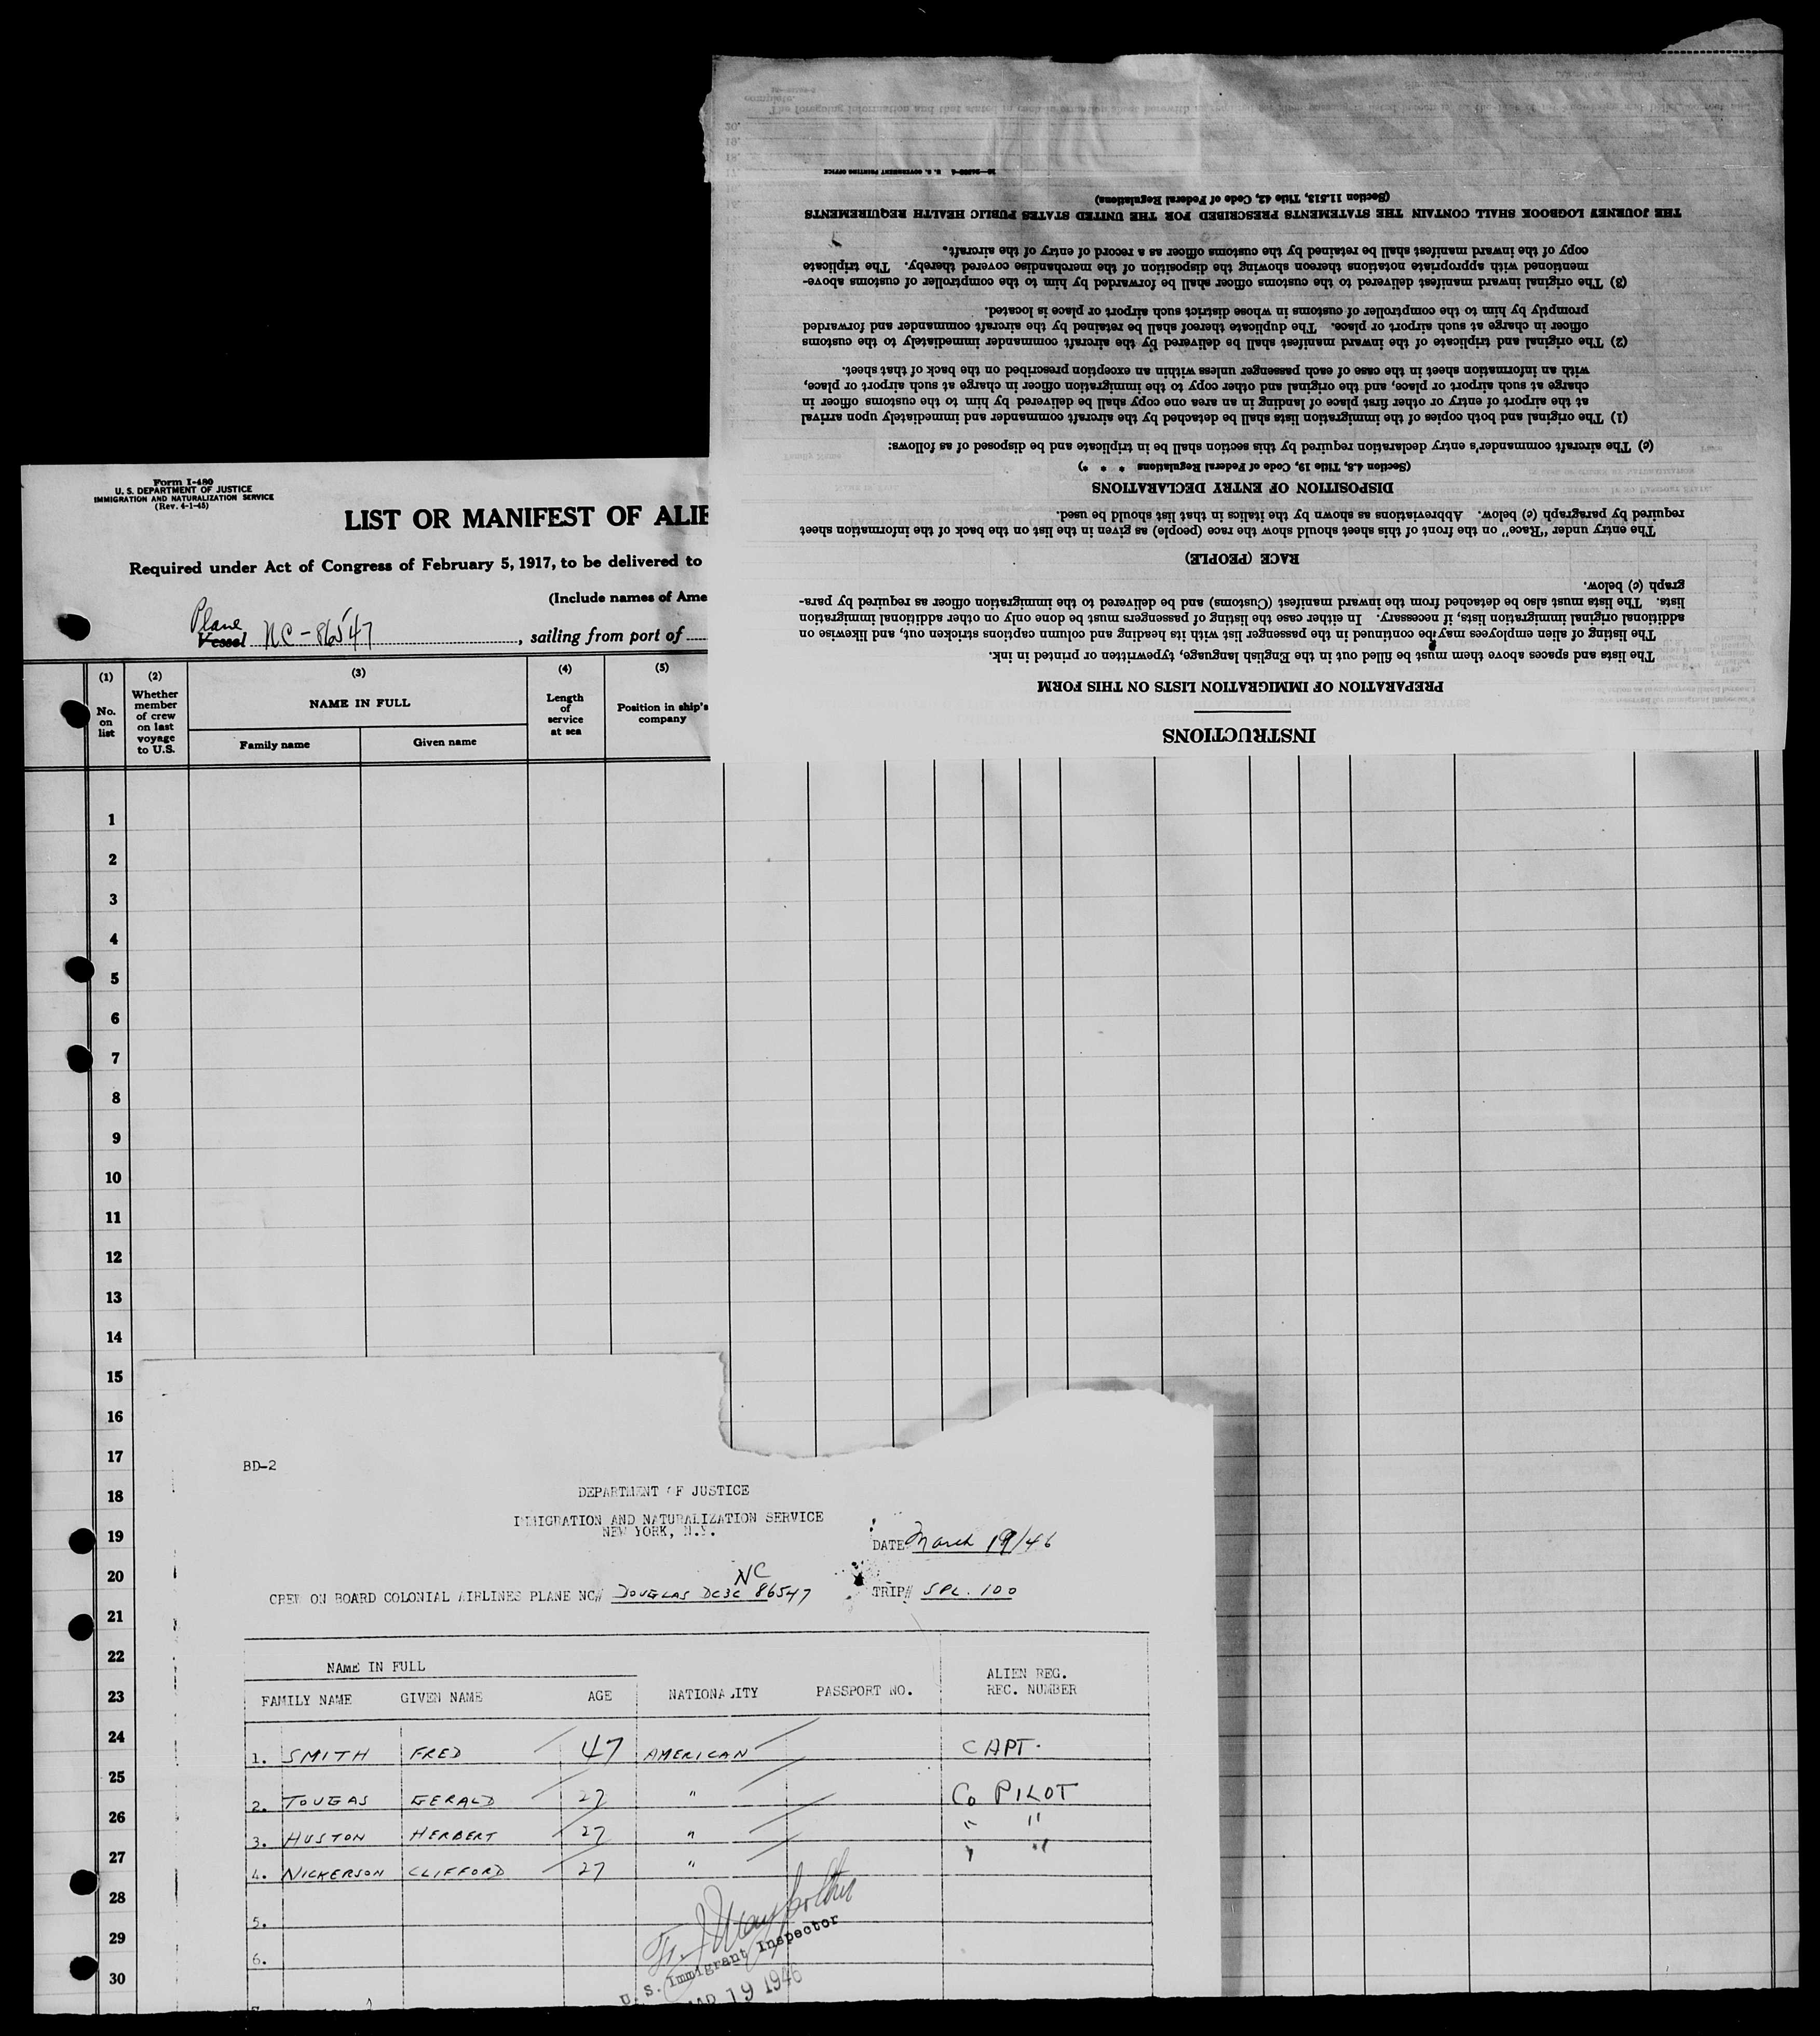 Form I-480
U. S. DEPARTMENT OF JUSTICE
IMMIGRATION AND NATURALIZATION SERVICE
(Rev. 4-1-45)
LIST OR MANIFEST OF ALIE
Required under Act of Congress of February 5, 1917, to be delivered to
(Include names of Ame
Plane
Vessel NC-86547, sailing from port of
(1) (2) (3) (4) (5)
No. on list
Whether member of crew on last voyage to U.S.
NAME IN FULL
Family name Given name
Length of service at sea
Position in ship's company
1
2
3
4
5
6
7
8
9
10
11
12
13
14
15
16
17
18
19
20
21
22
23
24
25
26
27
28
29
30
INSTRUCTIONS
PREPARATION OF IMMIGRATION LISTS ON THIS FORM
The lists and spaces above them must be filled out in the English language, typewritten or printed in ink.
The listing of alien employees may be continued in the passenger list with its heading and column captions stricken out, and likewise on
additional original immigration lists, if necessary. In either case the listing of passengers must be done only on other additional immigration
lists. The lists must also be detached from the inward manifest (Customs) and be delivered to the immigration officer as required by para-
graph (c) below.
RACE (PEOPLE)
The entry under "Race" on the front of this sheet should show the race (people) as given in the list on the back of the information sheet
required by paragraph (c) below. Abbreviations as shown by the italics in that list should be used.
DISPOSITION OF ENTRY DECLARATIONS
(Section 4.8, Title 19, Code of Federal Regulations * * *)
(c) The aircraft commander's entry declaration required by this section shall be in triplicate and be disposed of as follows:
(1) The original and both copies of the immigration lists shall be detached by the aircraft commander and immediately upon arrival
at the airport of entry or other first place of landing in an area one copy shall be delivered by him to the customs officer in
charge at such airport or place, and the original and other copy to the immigration officer in charge at such airport or place,
with an information sheet in the case of each passenger unless within an exception prescribed on the back of that sheet.
(2) The original and triplicate of the inward manifest shall be delivered by the aircraft commander immediately to the customs
officer in charge at such airport or place. The duplicate thereof shall be retained by the aircraft commander and forwarded
promptly by him to the comptroller of customs in whose district such airport or place is located.
(3) The original inward manifest delivered to the customs officer shall be forwarded by him to the comptroller of customs above-
mentioned with appropriate notations thereon showing the disposition of the merchandise covered thereby. The triplicate
copy of the inward manifest shall be retained by the customs officer as a record of entry of the aircraft.
THE JOURNEY LOGBOOK SHALL CONTAIN THE STATEMENTS PRESCRIBED FOR THE UNITED STATES PUBLIC HEALTH REQUIREMENTS
(Section 11.513, Title 42, Code of Federal Regulations)
U. S. GOVERNMENT PRINTING OFFICE
BD-2
DEPARTMENT OF JUSTICE
IMMIGRATION AND NATURALIZATION SERVICE
NEW YORK, N.Y.
DATE March 19/46
NC
CREW ON BOARD COLONIAL AIRLINES PLANE NC# DOUGLAS DC3C 86547 TRIP# SPL. 100
NAME IN FULL
FAMILY NAME GIVEN NAME AGE NATIONALITY PASSPORT NO. ALIEN REG. REC. NUMBER
1. SMITH FRED 47 AMERICAN CAPT.
2. TOUGAS GERALD 27 " CO PILOT
3. HUSTON HERBERT 27 " " "
4. NICKERSON CLIFFORD 27 " " "
5.
6.
U. S. Immigrant Inspector
MAR 19 1946